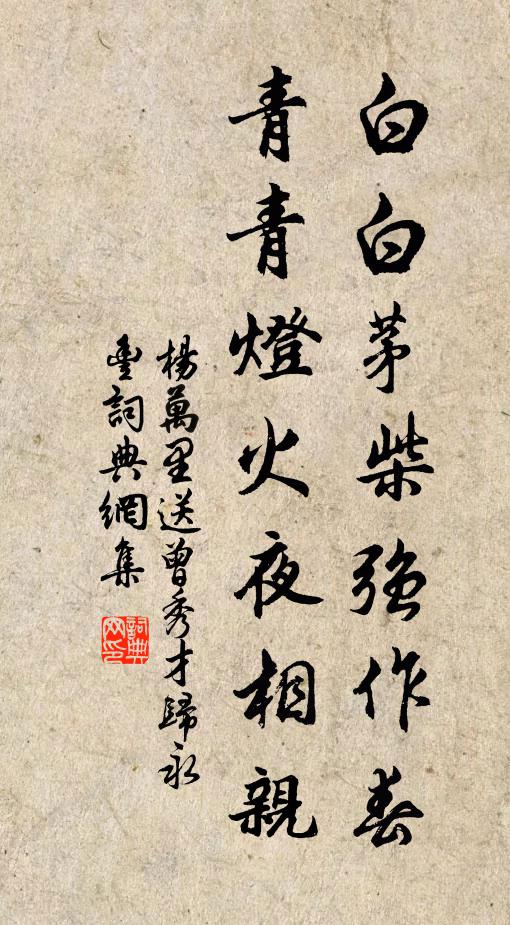 白白茅柴強作春
青青燈火夜相親
楊萬里送曾秀才歸永
豐詞典網集
詞典網印